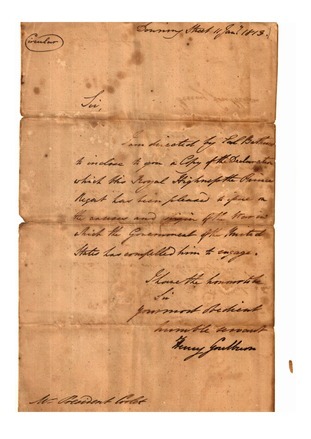 Circular
Downing Street 11 Jany 1813.
Sir,
I am directed by Earl Bathurst
to inclose to you a Copy of the Declaration
which His Royal Highness the Prince
Regent has been pleased to issue on
the causes and origin of the War in
which the Government of the United
States has compelled him to engage.
I have the honor to be
Sir
your most obedient
humble servant
Henry Goulburn
Mr President